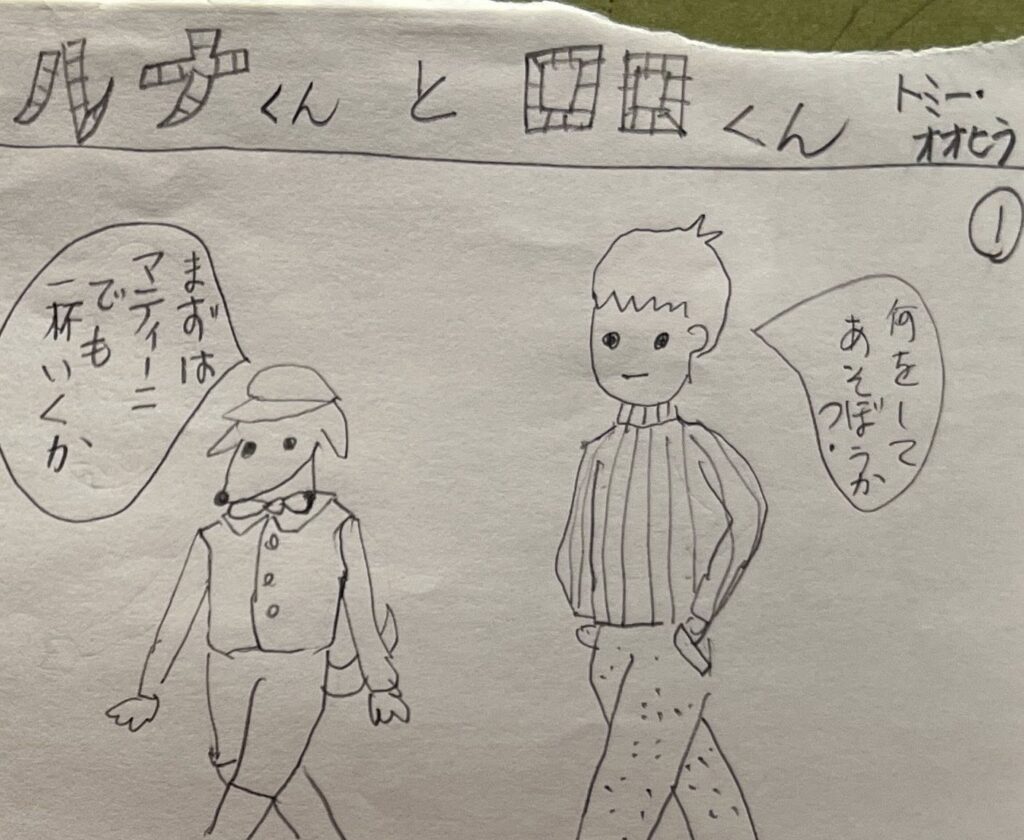 ルナくんとロロくん
トミー・
オオヒラ
①
何をして
あそぼうか
?
まずは
マティーニ
でも
一杯いくか